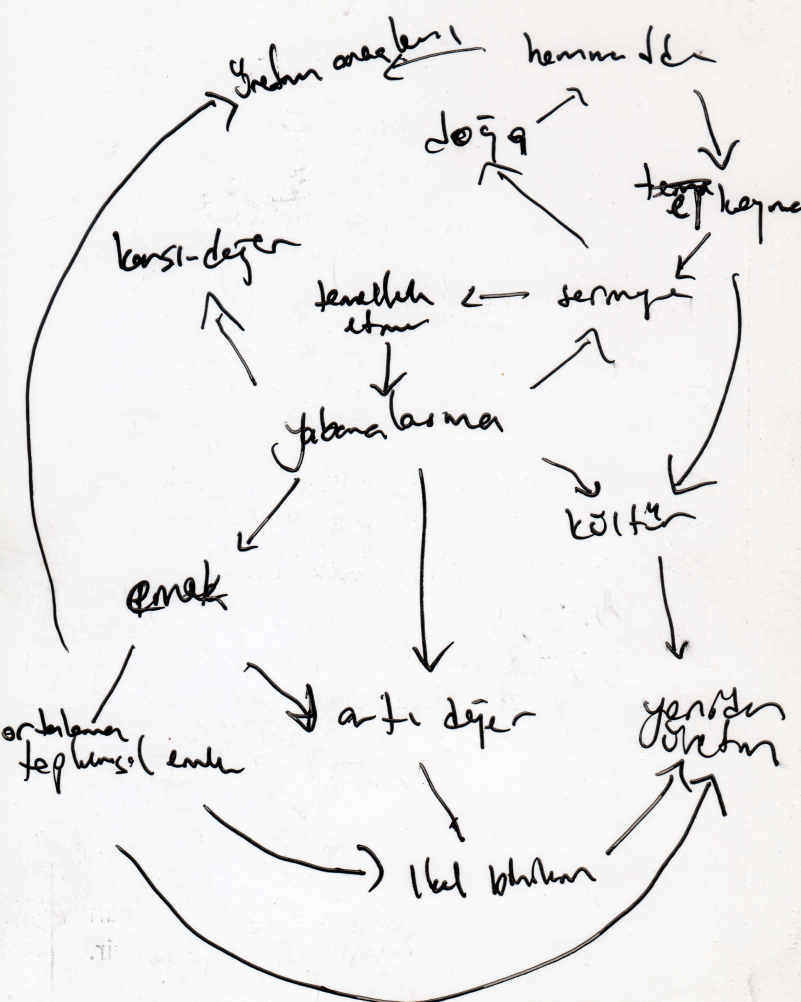 üretim araçları
hammadde
doğa
karşı-değer
temellük
etme
sermaye
yabancılaşma
kültür
emek
artı değer
yeniden
üretim
ortalama
toplumsal emek
ilkel birikim